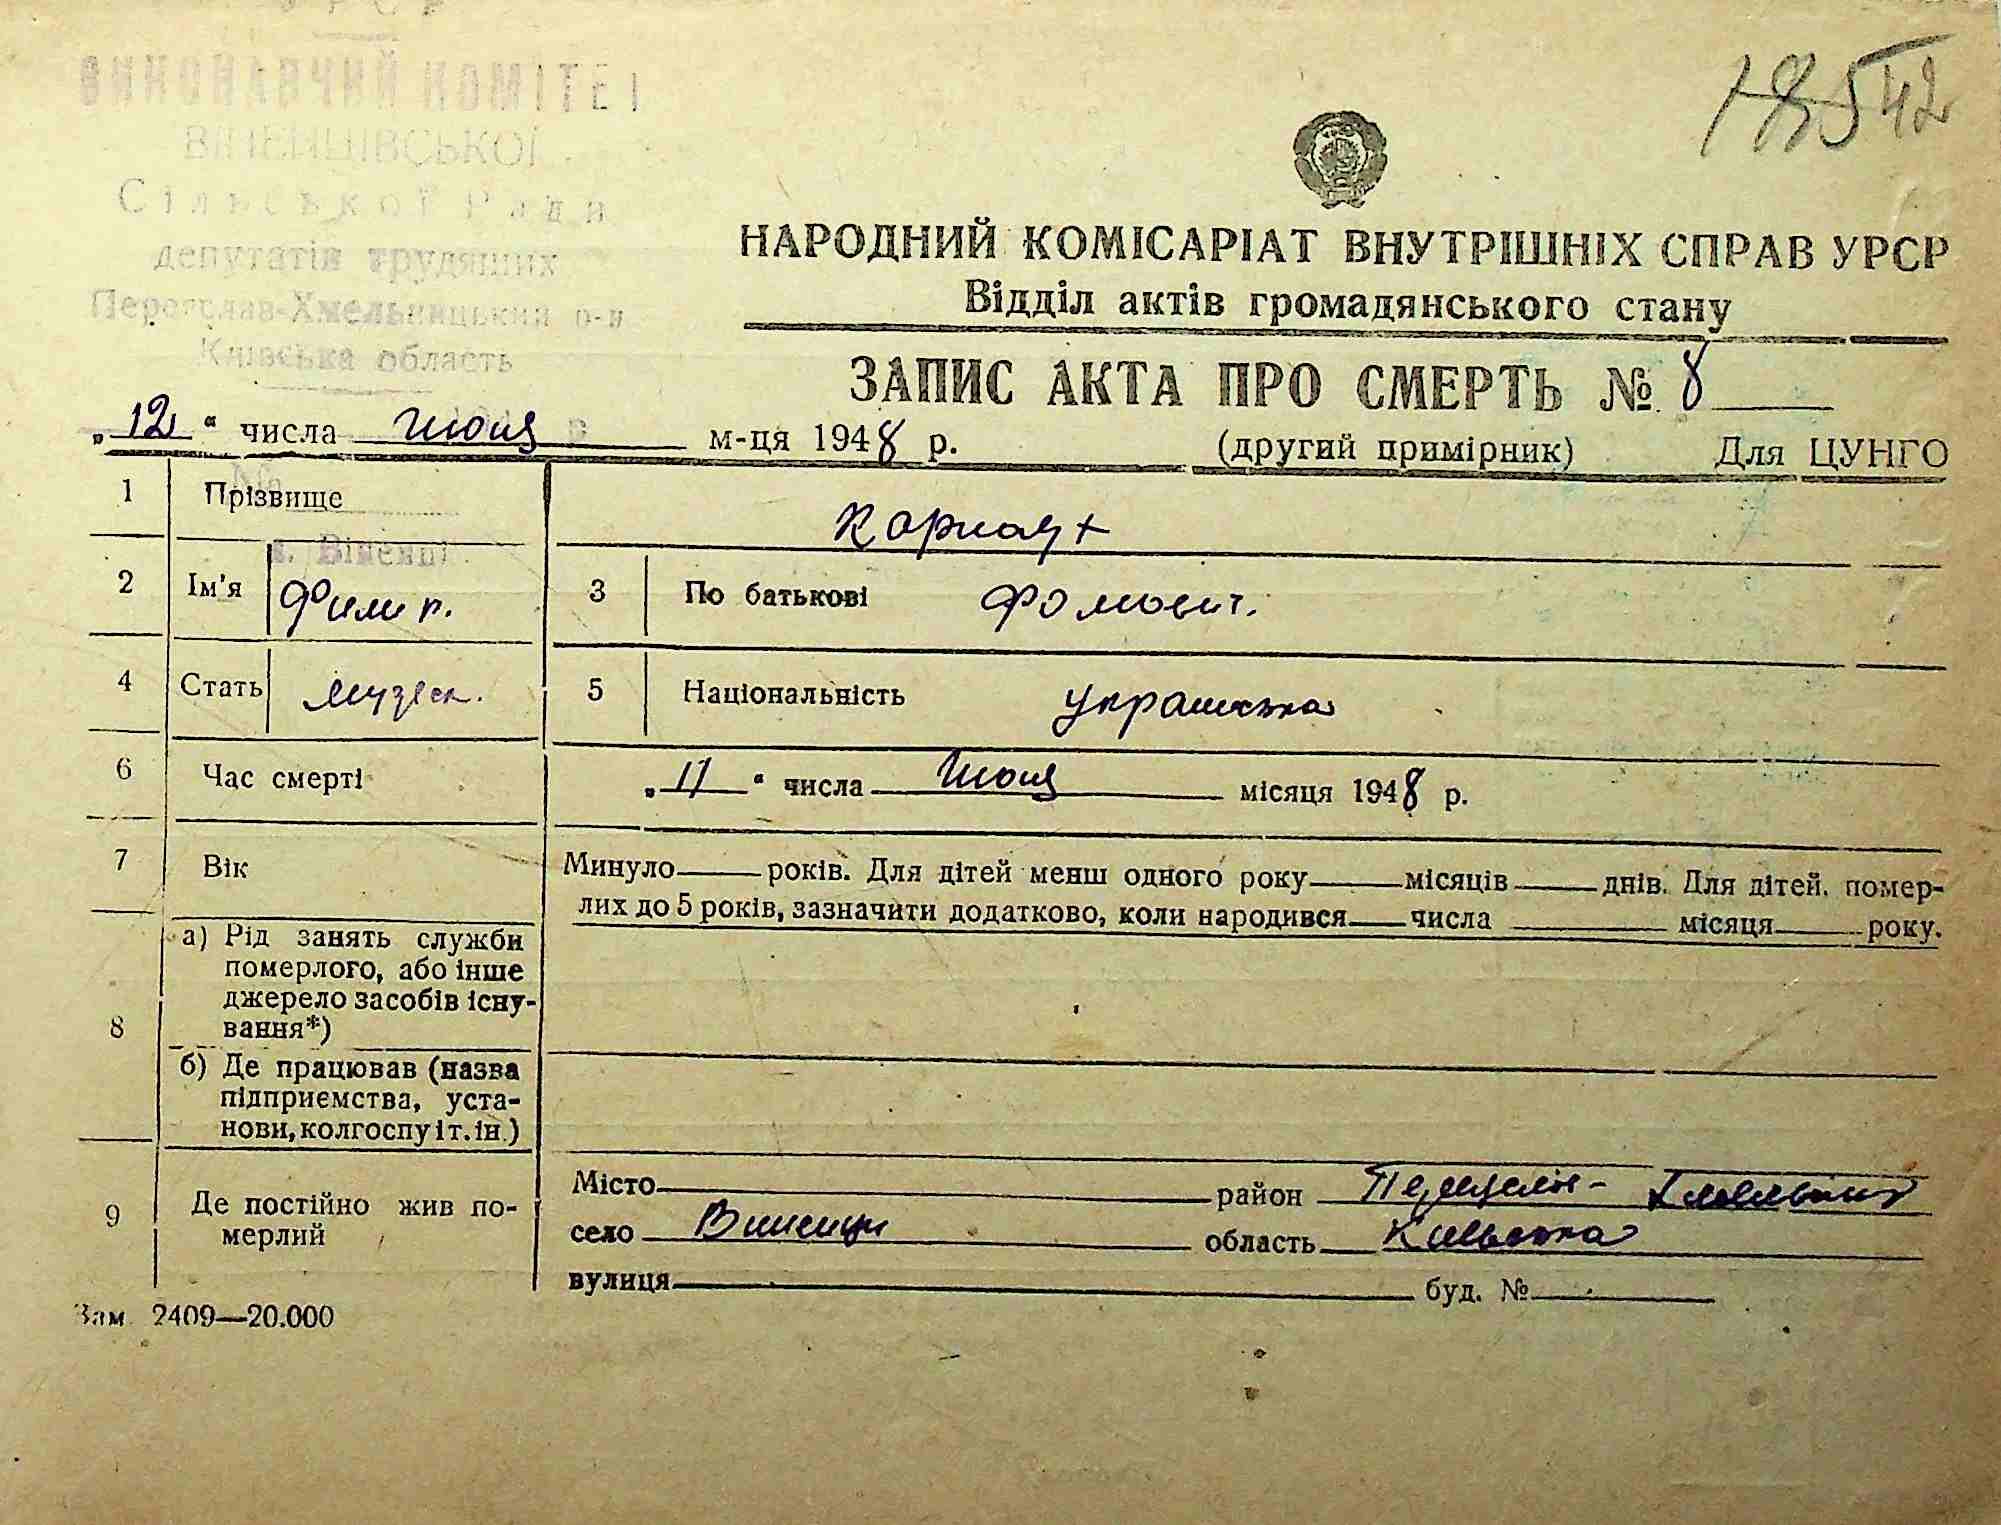 УРСР
ВИКОНАВЧИЙ КОМІТЕТ
ВІНЕНЦІВСЬКОЇ
Сільської Ради
депутатів трудящих
Переяслав-Хмельницький р-н
Київська область
18542
НАРОДНИЙ КОМІСАРІАТ ВНУТРІШНІХ СПРАВ УРСР
Відділ актів громадянського стану
ЗАПИС АКТА ПРО СМЕРТЬ № 8
„12“ числа июня м-ця 1948 р. (другий примірник) Для ЦУНГО
№
с. Віненці
1 Прізвище Корнаух
2 Ім'я Филип. 3 По батькові Фомович.
4 Стать мужск. 5 Національність украинска
6 Час смерті „11“ числа июня місяця 1948 р.
7 Вік Минуло років. Для дітей менш одного року місяців днів. Для дітей, помер-
лих до 5 років, зазначити додатково, коли народився числа місяця року.
8 а) Рід занять служби
померлого, або інше
джерело засобів існу-
вання*)
б) Де працював (назва
підприємства, уста-
нови, колгоспу і т. ін.)
9 Де постійно жив по-
мерлий
Місто район
село Виненци область Киевска
вулиця буд. №
Зам. 2409—20.000